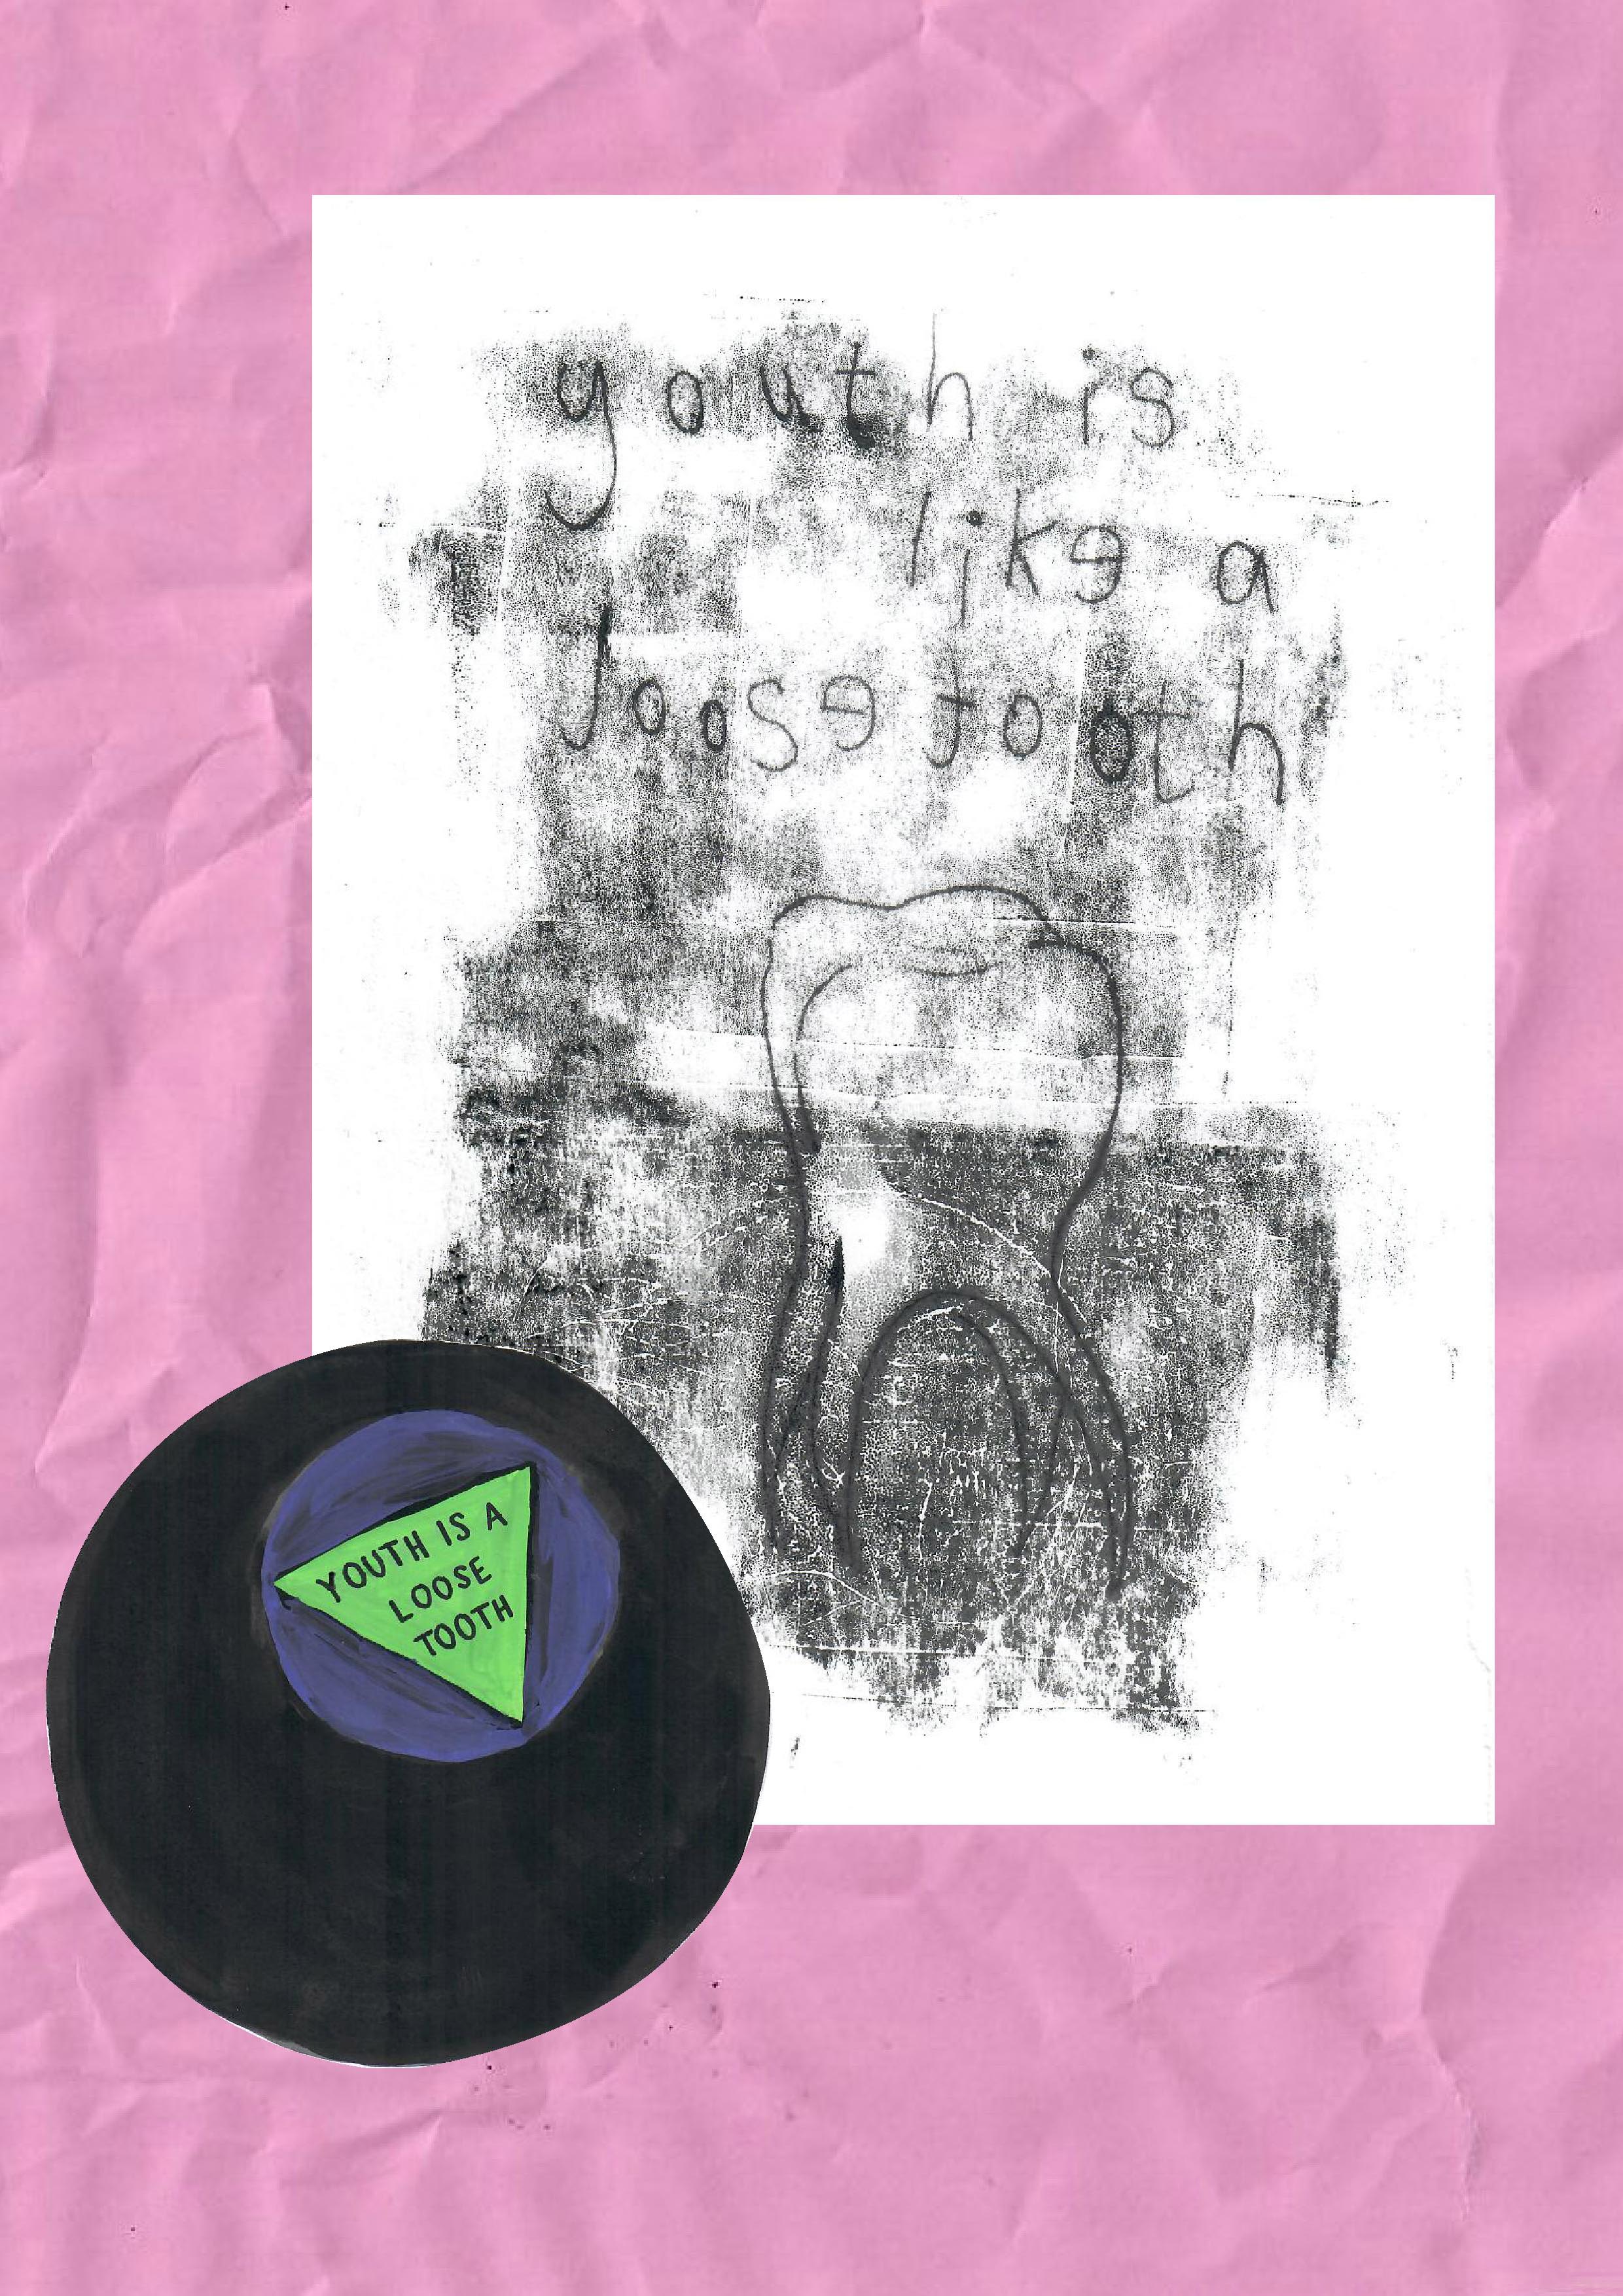 youth is
like a
loose tooth
YOUTH IS A
LOOSE
TOOTH